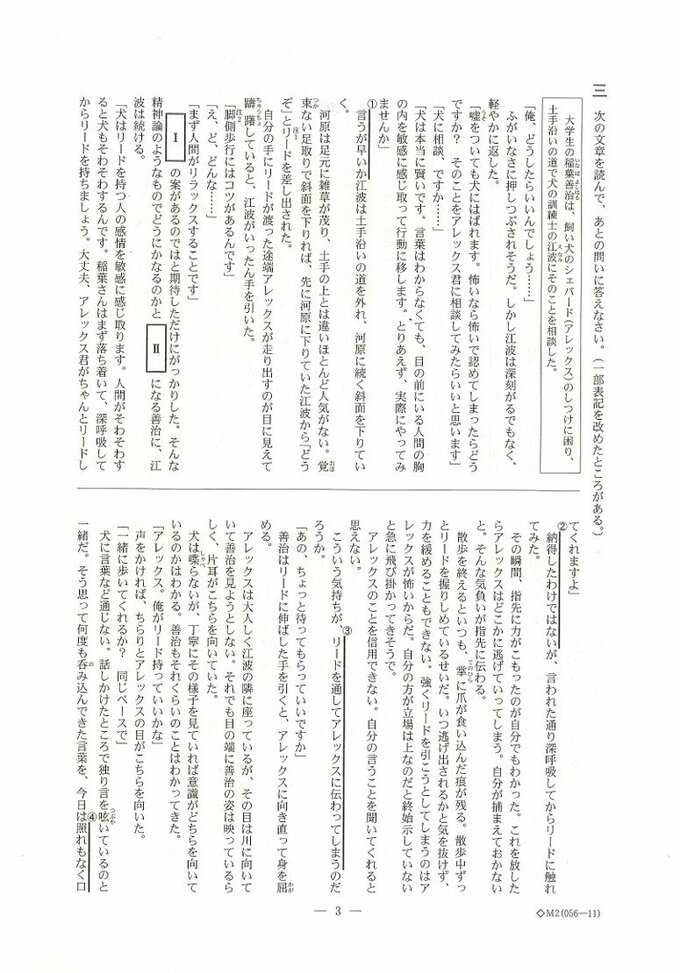 三　次の文章を読んで、あとの問いに答えなさい。（一部表記を改めたところがある。）
大学生の稲葉善治は、飼い犬のシェパード（アレックス）のしつけに困り、
土手沿いの道で犬の訓練士の江波にそのことを相談した。
「俺、どうしたらいいんでしょう……」
ふがいなさに押しつぶされそうだ。しかし江波は深刻がるでもなく、
軽やかに返した。
「嘘をついても犬にはばれます。怖いなら怖いで認めてしまったらどう
ですか？　そのことをアレックス君に相談してみたらいいと思います」
「犬に相談、ですか……」
「犬は本当に賢いです。言葉はわからなくても、目の前にいる人間の胸
の内を敏感に感じ取って行動に移します。とりあえず、実際にやってみ
ませんか」
①言うが早いか江波は土手沿いの道を外れ、河原に続く斜面を下りてい
く。
河原は足元に雑草が茂り、土手の上とは違いほとんど人気がない。覚
束ない足取りで斜面を下りれば、先に河原に下りていた江波から「どう
ぞ」とリードを差し出された。
自分の手にリードが渡った途端アレックスが走り出すのが目に見えて
躊躇していると、江波がいったん手を引いた。
「脚側歩行にはコツがあるんです」
「え、ど、どんな……」
「まず人間がリラックスすることです」
Ⅰの案があるのではと期待しただけにがっかりした。そんな
精神論のようなものでどうにかなるのかとⅡになる善治に、江
波は続ける。
「犬はリードを持つ人の感情を敏感に感じ取ります。人間がそわそわす
ると犬もそわそわするんです。稲葉さんはまず落ち着いて、深呼吸して
からリードを持ちましょう。大丈夫、アレックス君がちゃんとリードし
てくれますよ」
②納得したわけではないが、言われた通り深呼吸してからリードに触れ
てみた。
その瞬間、指先に力がこもったのが自分でもわかった。これを放した
らアレックスはどこかに逃げていってしまう。自分が捕まえておかない
と。そんな気負いが指先に伝わる。
散歩を終えるといつも、掌に爪が食い込んだ痕が残る。散歩中ずっ
とリードを握りしめているせいだ。いつ逃げ出されるかと気を抜けず、
力を緩めることもできない。強くリードを引こうとしてしまうのはア
レックスが怖いからだ。自分の方が立場は上なのだと終始示していない
と急に飛び掛かってきそうで。
アレックスのことを信用できない。自分の言うことを聞いてくれると
思えない。
こういう気持ちが、③リードを通してアレックスに伝わってしまうのだ
ろうか。
「あの、ちょっと待ってもらっていいですか」
善治はリードに伸ばした手を引くと、アレックスに向き直って身を屈
める。
アレックスは大人しく江波の隣に座っているが、その目は川に向いて
いて善治を見ようとしない。それでも目の端に善治の姿は映っているら
しく、片耳がこちらを向いていた。
犬は喋らないが、丁寧にその様子を見ていれば意識がどちらを向いて
いるのかはわかる。善治もそれくらいのことはわかってきた。
「アレックス。俺がリード持っていいかな」
声をかければ、ちらりとアレックスの目がこちらを向いた。
「一緒に歩いてくれるか？　同じペースで」
犬に言葉など通じない。話しかけたところで独り言を呟いているのと
一緒だ。そう思って何度も呑み込んできた言葉を、今日は④照れもなく口
― 3 ―
◇M2(056―11)